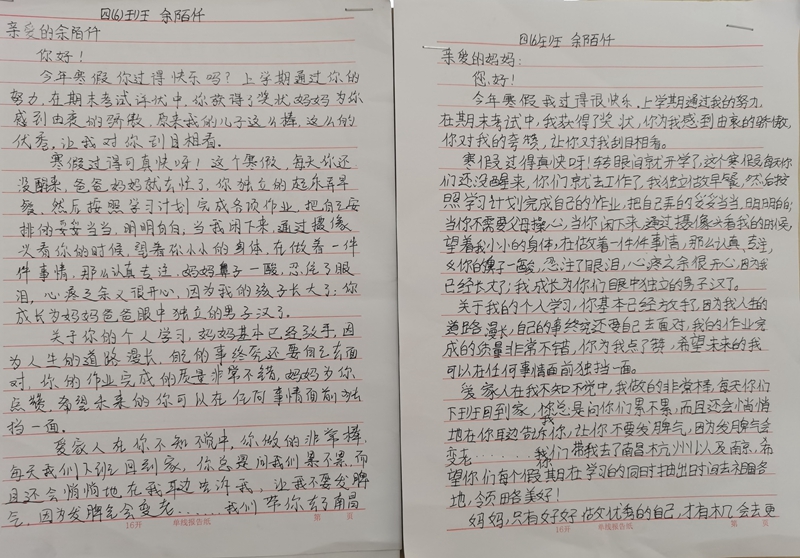 四(6)班 余陌仟
亲爱的余陌仟
你好！
今年寒假你过得快乐吗？上学期通过你的
努力，在期末考试评优中，你获得了奖状，妈妈为你
感到由衷的骄傲，原来我的儿子这么棒，这么的
优秀，让我对你刮目相看。
寒假过得可真快呀！这个寒假，每天你还
没醒来，爸爸妈妈就去忙了，你独立的起床弄早
餐，然后按照学习计划完成各项作业，把自己安
排的妥妥当当，明明白白，当我闲下来，通过摄像
头看你的时候，望着你小小的身体，在做着一件
件事情，那么认真专注，妈妈鼻子一酸，忍住了眼
泪，心疼之余又很开心，因为我的孩子长大了；你
成长为妈妈爸爸眼中独立的男子汉了。
关于你的个人学习，妈妈基本已经放手，因
为人生的道路漫长，自己的事终究还要自己去面
对，你的作业完成的质量非常不错，妈妈为你
点赞，希望未来的你可以在任何事情面前独
挡一面。
爱家人在你不知不觉中，你做的非常棒，
每天我们下班回到家，你总是问我们累不累，而
且还会悄悄地在我耳边告诉我，让我不要发脾
气，因为发脾气会变老……我们带你去了南昌
16开 单线报告纸 第 页
四(6)班 余陌仟
亲爱的妈妈：
您好！
今年寒假我过得很快乐，上学期通过我的努力，
在期末考试中，我获得了奖状，你为我感到由衷的骄傲，
你对我的夸奖，让你对我刮目相看。
寒假过得真快呀！转眼间就开学了，这个寒假每天你
们还没醒来，你们就去工作了，我独立做早餐，然后按
照学习计划完成自己的作业，把自己弄的妥妥当当，明明白白；
当你不需要父母操心，当你闲下来，通过摄像头看我的时候，
望着我小小的身体，在做着一件件事情，那么认真、专注，
你的鼻子一酸，忍住了眼泪，心疼之余很开心，因为我
已经长大了；我成长为你们眼中独立的男子汉了。
关于我的个人学习，你基本已经放手，因为我人生的
道路漫长，自己的事终究还要自己去面对，我的作业完
成的质量非常不错，你为我点了赞，希望未来的我
可以在任何事情面前独挡一面。
爱家人在我不知不觉中，我做的非常棒，每天你们
下班回到家，你总是问你们累不累，而且还会悄悄
地在你耳边告诉你，让你不要发脾气，因为发脾气会
变老………我们带我去了南昌杭州以及南京，希
望你们每个假期在学习的同时抽出时间去祖国各
地，领略美好！
妈妈，只有好好做优秀的自己，才有机会去更
16开 单线报告纸 第 页